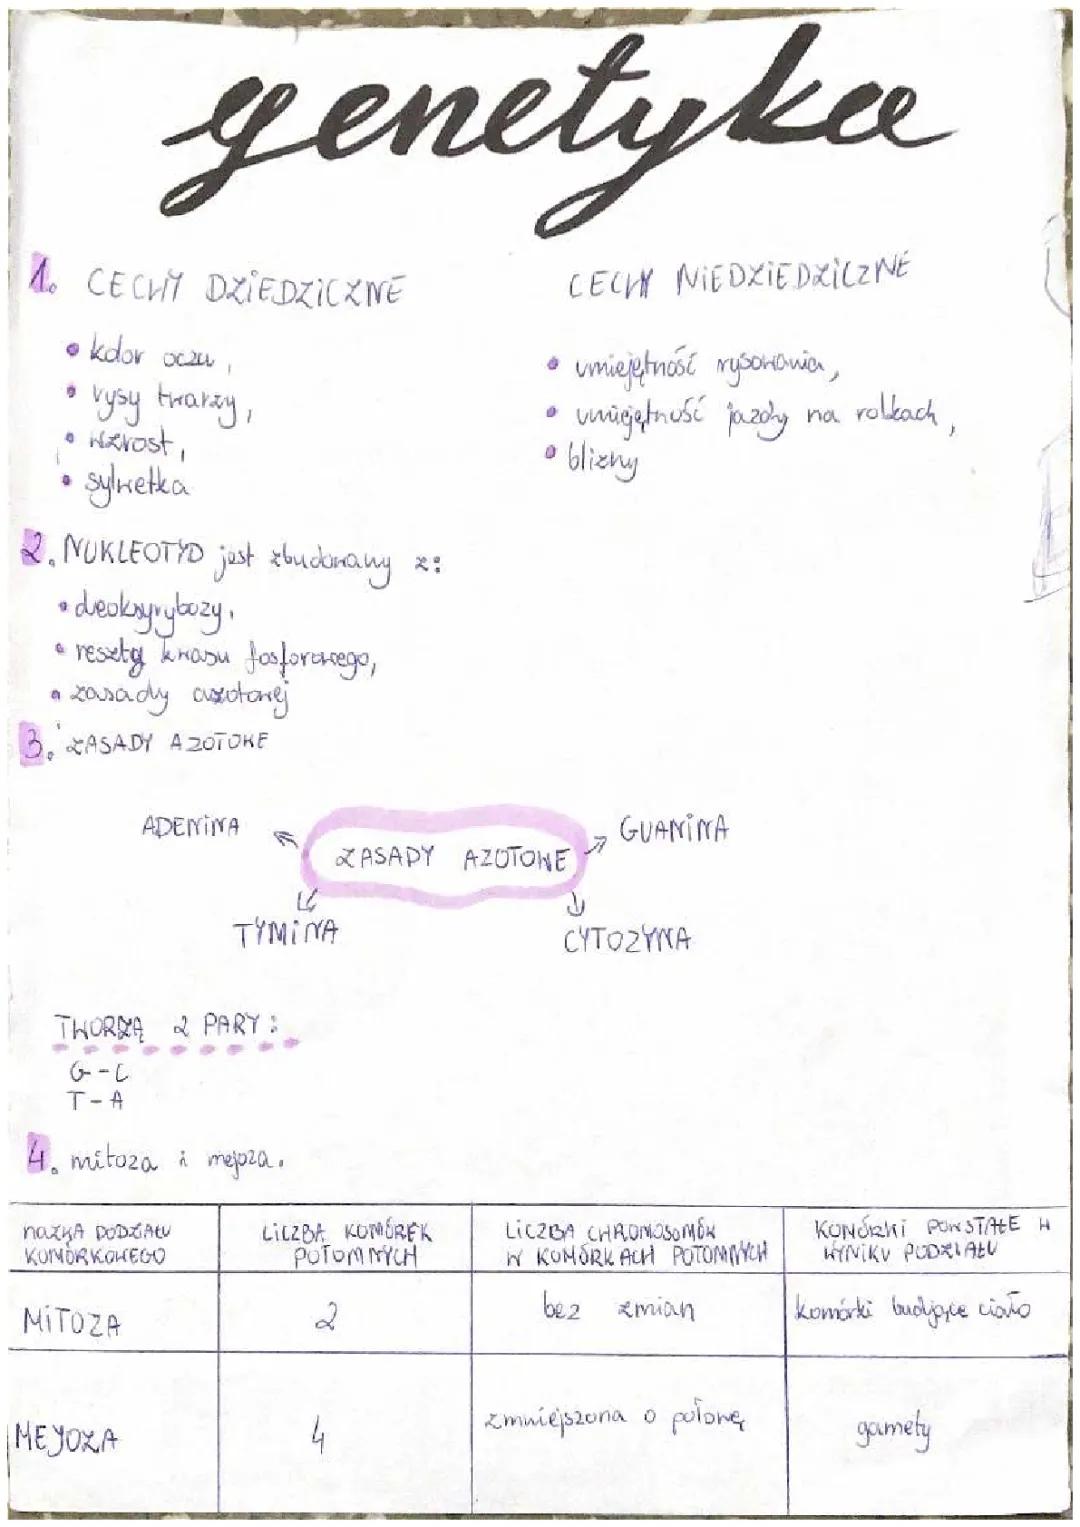 genetyka
1. CECHY DZIEDZICZNE
CECHY NIEDZIEDZICZNE
• kolor oczu,
• rysy twarzy,
• wzrost,
• sylwetka
• umiejętność rysowania,
• umiejętność jazdy na rolkach,
• blizny
2. NUKLEOTYD jest zbudowany z:
• deoksyrybozy,
• reszty kwasu fosforowego,
• zasady azotowej
3. ZASADY AZOTOWE
ADENINA
GUANINA
ZASADY AZOTOWE
TYMINA
CYTOZYNA
TWORZĄ 2 PARY:
G-C
T-A
4. mitoza i mejoza.
NAZWA PODZIAŁU KOMÓRKOWEGO
LICZBA KOMÓREK POTOMNYCH
LICZBA CHROMOSOMÓW W KOMÓRKACH POTOMNYCH
KOMÓRKI POWSTAŁE W WYNIKU PODZIAŁU
MITOZA
2
bez zmian
komórki budujące ciało
MEJOZA
4
zmniejszona o połowę
gamety